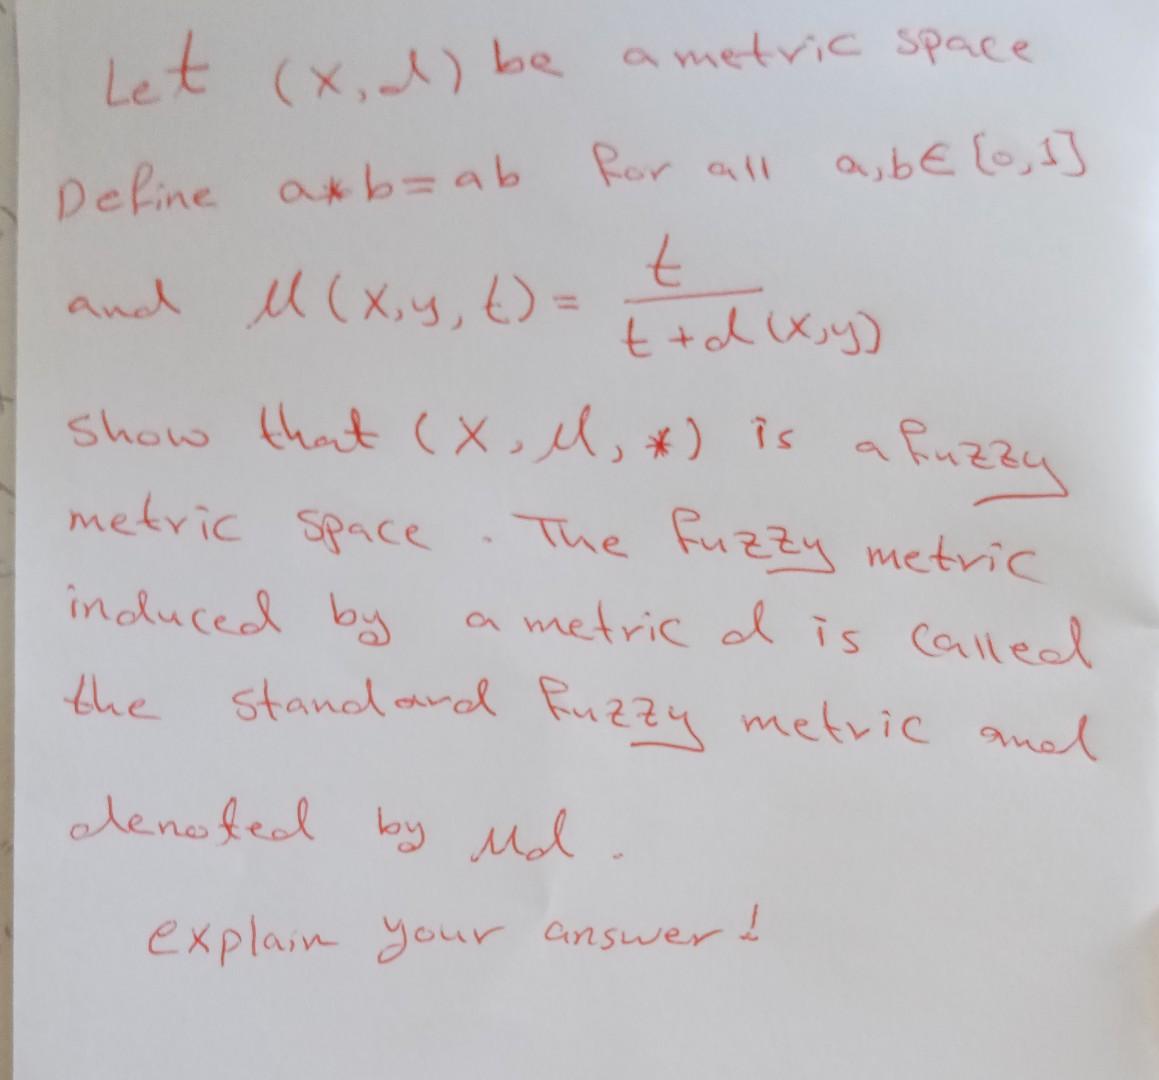 Let (X,d) be a metric space
Define a*b=ab for all a,b∈[0,1]
and M(x,y,t)= t/(t+d(x,y))
show that (X,M,*) is a fuzzy
metric space. The fuzzy metric
induced by a metric d is called
the standard fuzzy metric and
denoted by Md.
explain your answer!